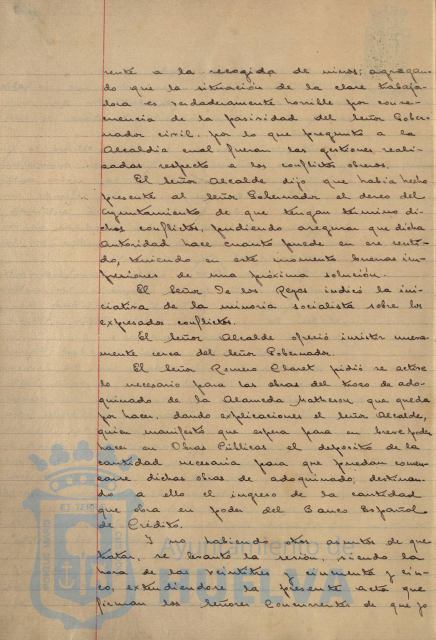 rente a la recogida de niños; agregan-
do que la situación de la clase trabaja-
dora es verdaderamente horrible por conse-
cuencia de la pasividad del señor Gober-
nador civil, por lo que pregunta a la
Alcaldía cual fueran las gestiones reali-
zadas respecto a los conflictos obreros.
El señor Alcalde dijo que había hecho
presente al señor Gobernador el deseo del
Ayuntamiento de que tengan término di-
chos conflictos, pudiendo asegurar que dicha
Autoridad hace cuanto puede en ese senti-
do, teniendo en este momento buenas im-
presiones de una próxima solución.
El Señor De los Reyes indicó la ini-
ciativa de la minoria socialista sobre los
expresados conflictos.
El señor Alcalde ofreció insistir nueva-
mente cerca del señor Gobernador.
El señor Romero Claret pidió se active
lo necesario para las obras del trozo de ado-
quinado de la Alameda Matheson que queda
por hacer, dando explicaciones el señor Alcalde,
quien manifestó que espera para en breve poder
hacer en Obras Públicas el depósito de la
cantidad necesaria para que puedan comen-
zarse dichas obras de adoquinado, destinan-
do a ello el ingreso de la cantidad
que obra en poder del Banco Español
de Crédito.
Y no habiendo otros asuntos de que
tratar, se levantó la sesión, siendo la
hora de las veintitres y cincuenta y cin-
co, extendiendose la presente acta que
firman los señores Concurrentes de que yo
Ayuntamiento de
HUELVA